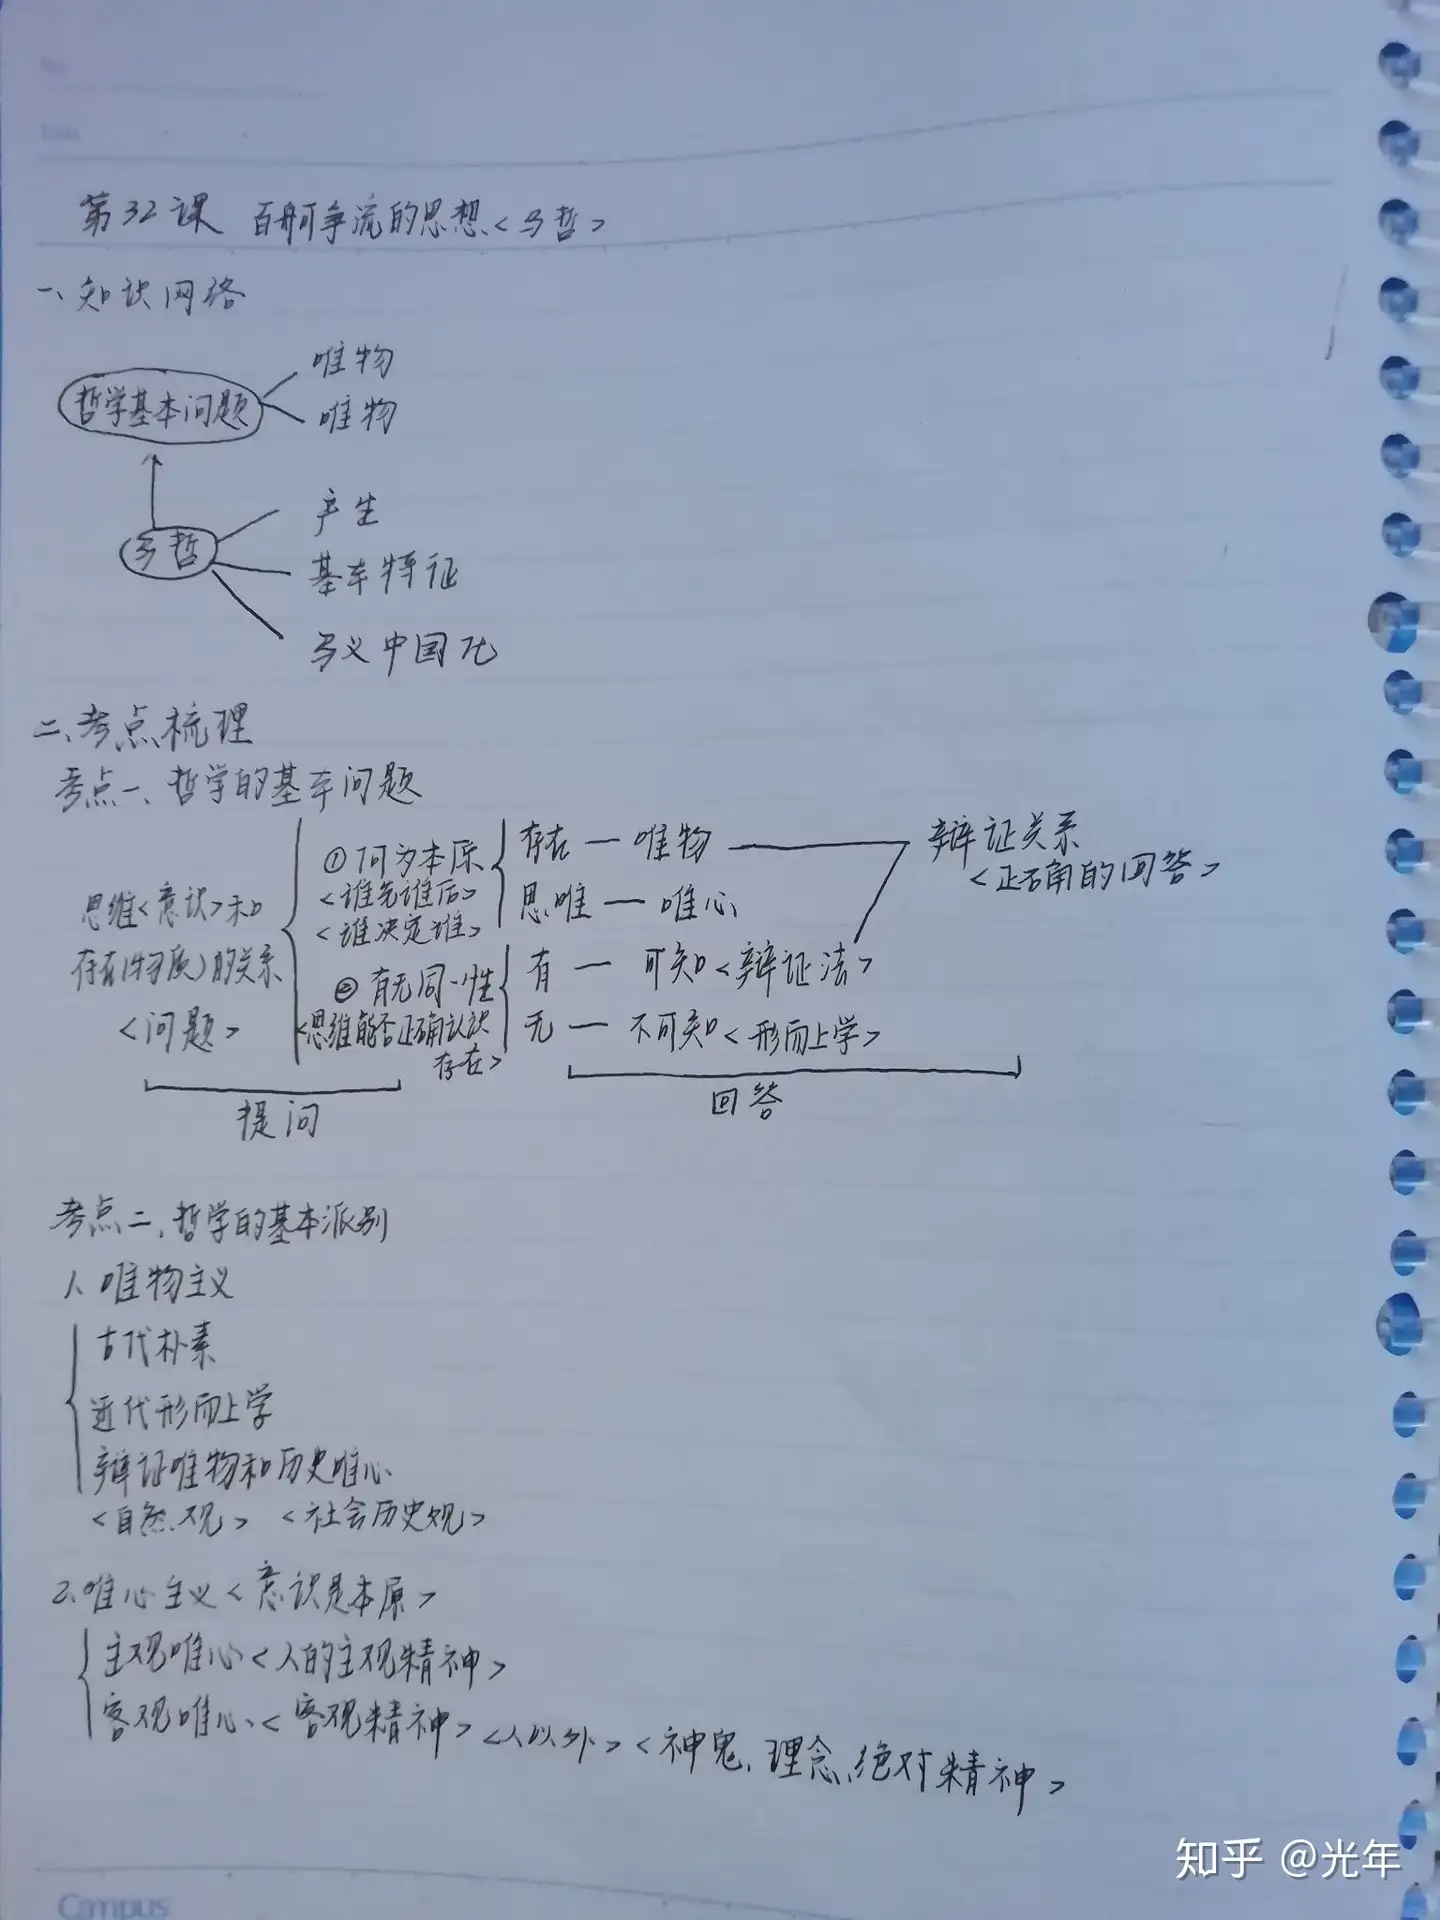 第32课 百舸争流的思想<马哲>
一、知识网络
唯物
哲学基本问题
唯物
产生
马哲
基本特征
马义中国化
二、考点梳理
考点一、哲学的基本问题
思维<意识>和
存在(物质)的关系
<问题>
①何为本原
<谁先谁后>
<谁决定谁>
存在—唯物
思唯—唯心
辩证关系
<正确的回答>
②有无同一性
<思维能否正确认识
存在>
有—可知<辩证法>
无—不可知<形而上学>
提问
回答
考点二、哲学的基本派别
1、唯物主义
古代朴素
近代形而上学
辩证唯物和历史唯心
<自然观> <社会历史观>
2、唯心主义<意识是本原>
主观唯心<人的主观精神>
客观唯心<客观精神><人以外><神鬼、理念、绝对精神>
Campus
知乎 @光年